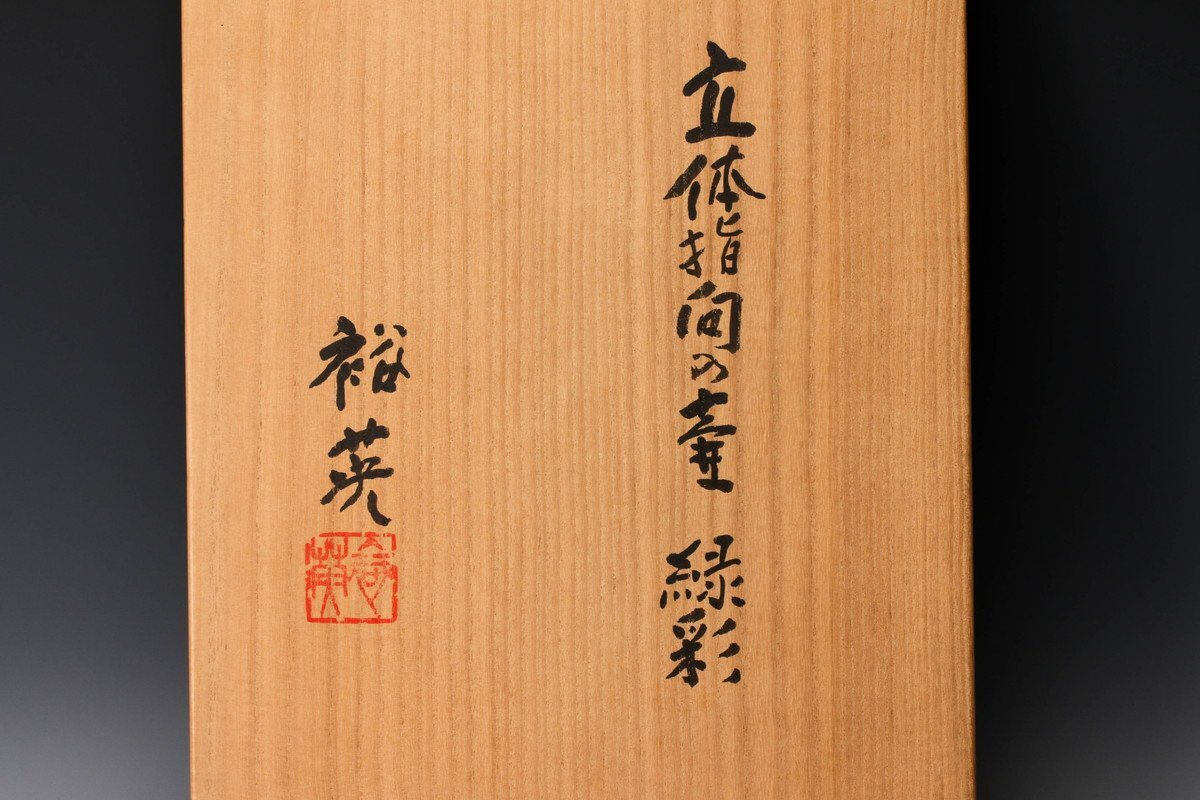 立体指向の壷 緑彩
裕英